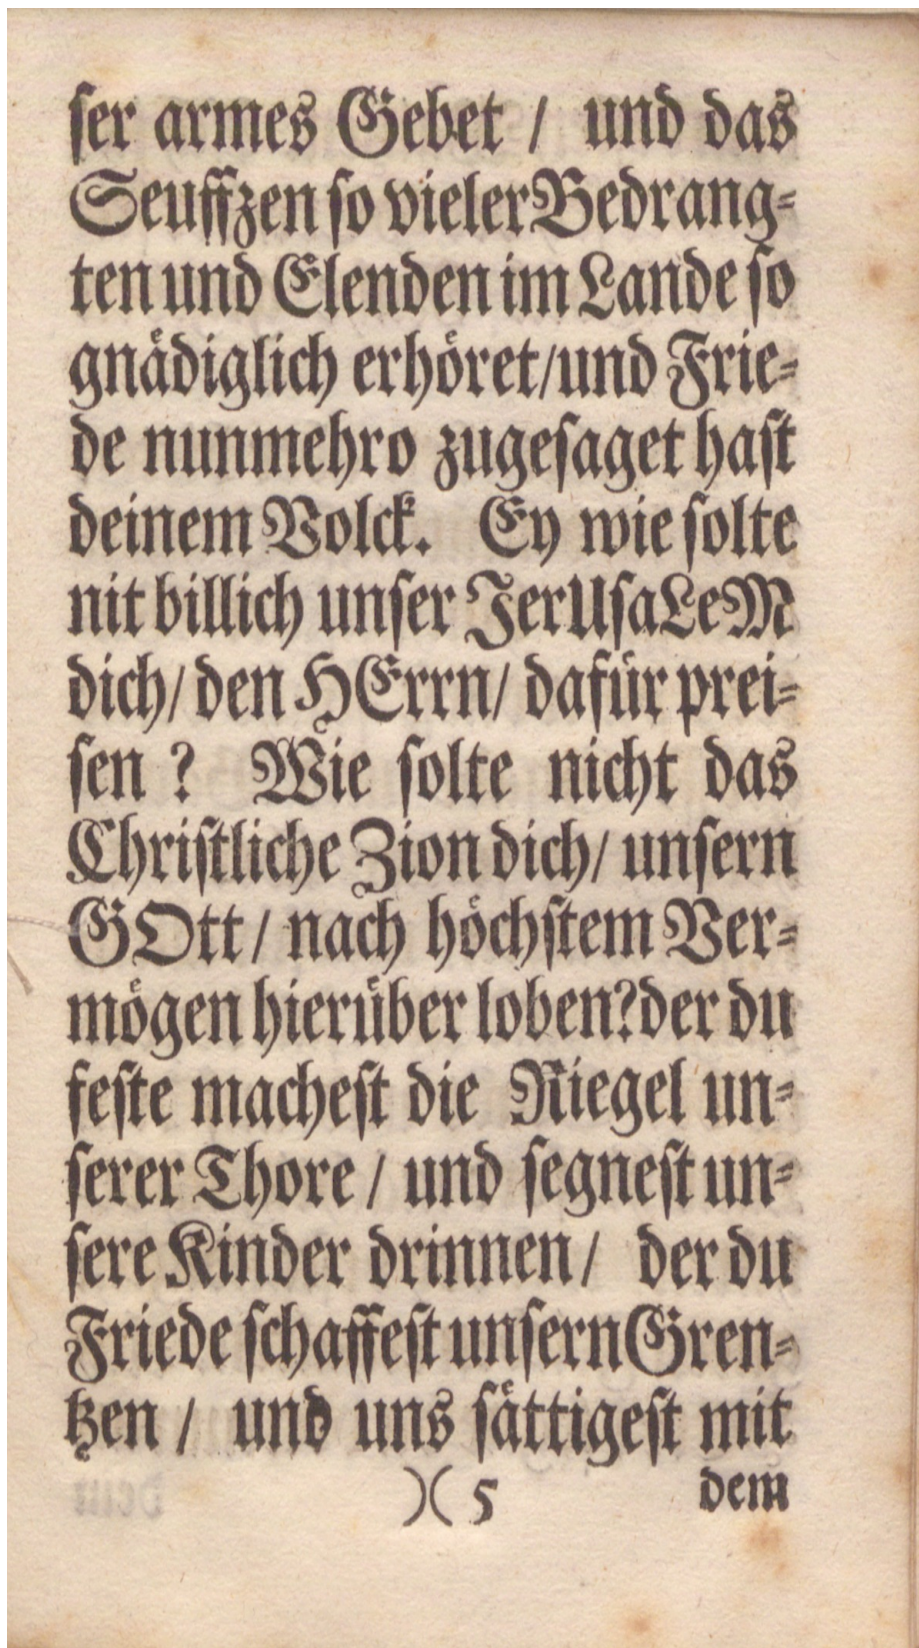 ſer armes Gebet / und das
Seuffzen ſo vieler Bedrang⸗
ten und Elenden im Lande ſo
gnädiglich erhöret/und Frie⸗
de nunmehro zugeſaget haſt
deinem Volck. Ey wie ſolte
nit billich unſer JerUſaLeM
dich/ den HErrn/ dafür prei⸗
ſen ? Wie ſolte nicht das
Chriſtliche Zion dich/ unſern
GOtt / nach höchſtem Ver⸗
mögen hierüber loben?der du
feſte macheſt die Riegel un⸗
ſerer Thore / und ſegneſt un⸗
ſere Kinder drinnen / der du
Friede ſchaffeſt unſern Gren⸗
tzen / und uns ſättigeſt mit
)( 5 dem